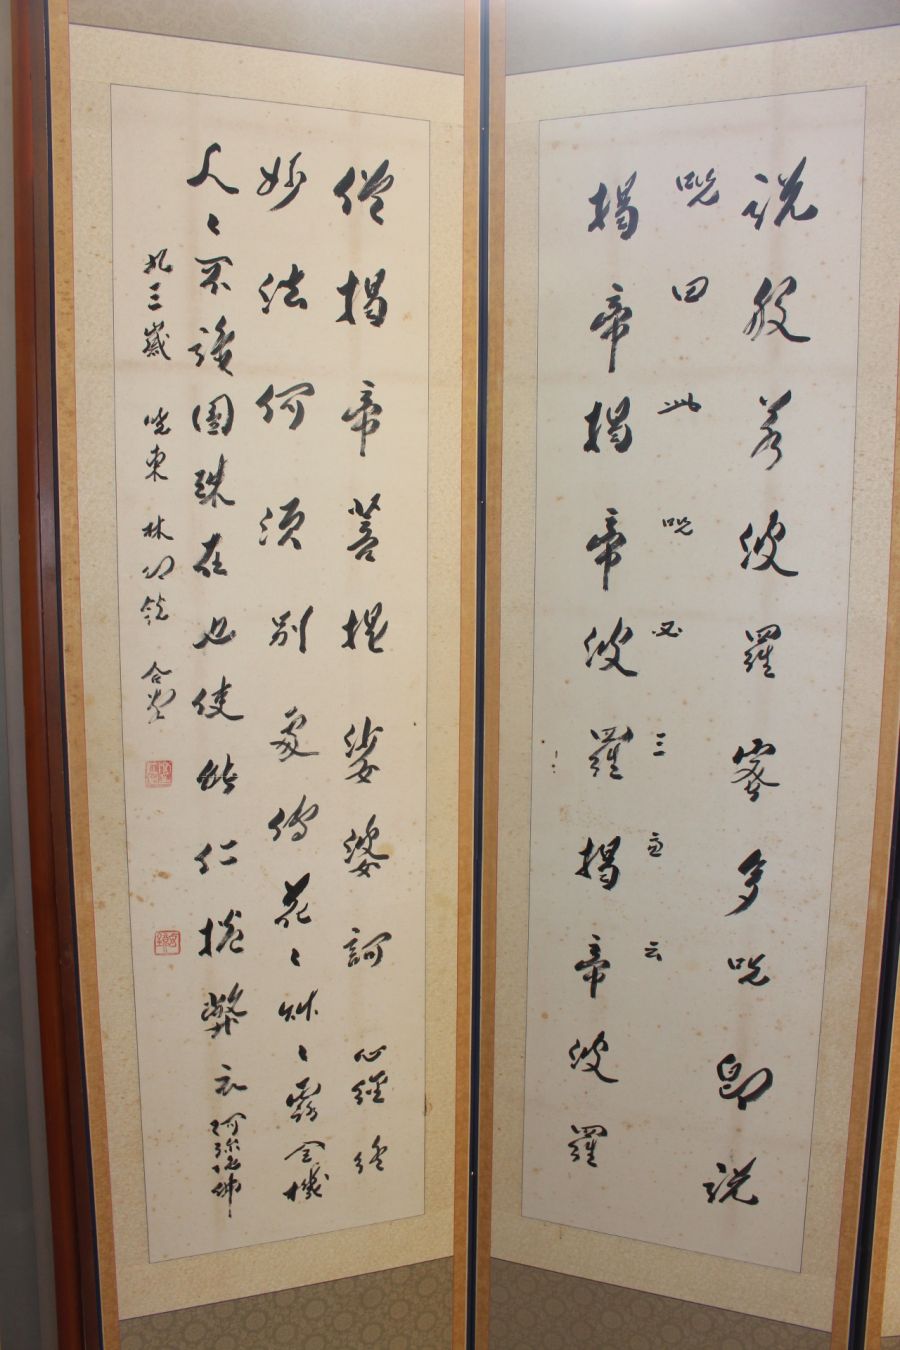 說般若波羅密多呪即說
呪曰 此呪必三立云
揭帝揭帝波羅揭帝波羅
僧揭帝菩提娑婆訶 心經終
妙法何須別處傳花〻艸〻露全機
人〻不識圓珠在也使能仁捲弊衣
九三歲 曉東 林 合掌